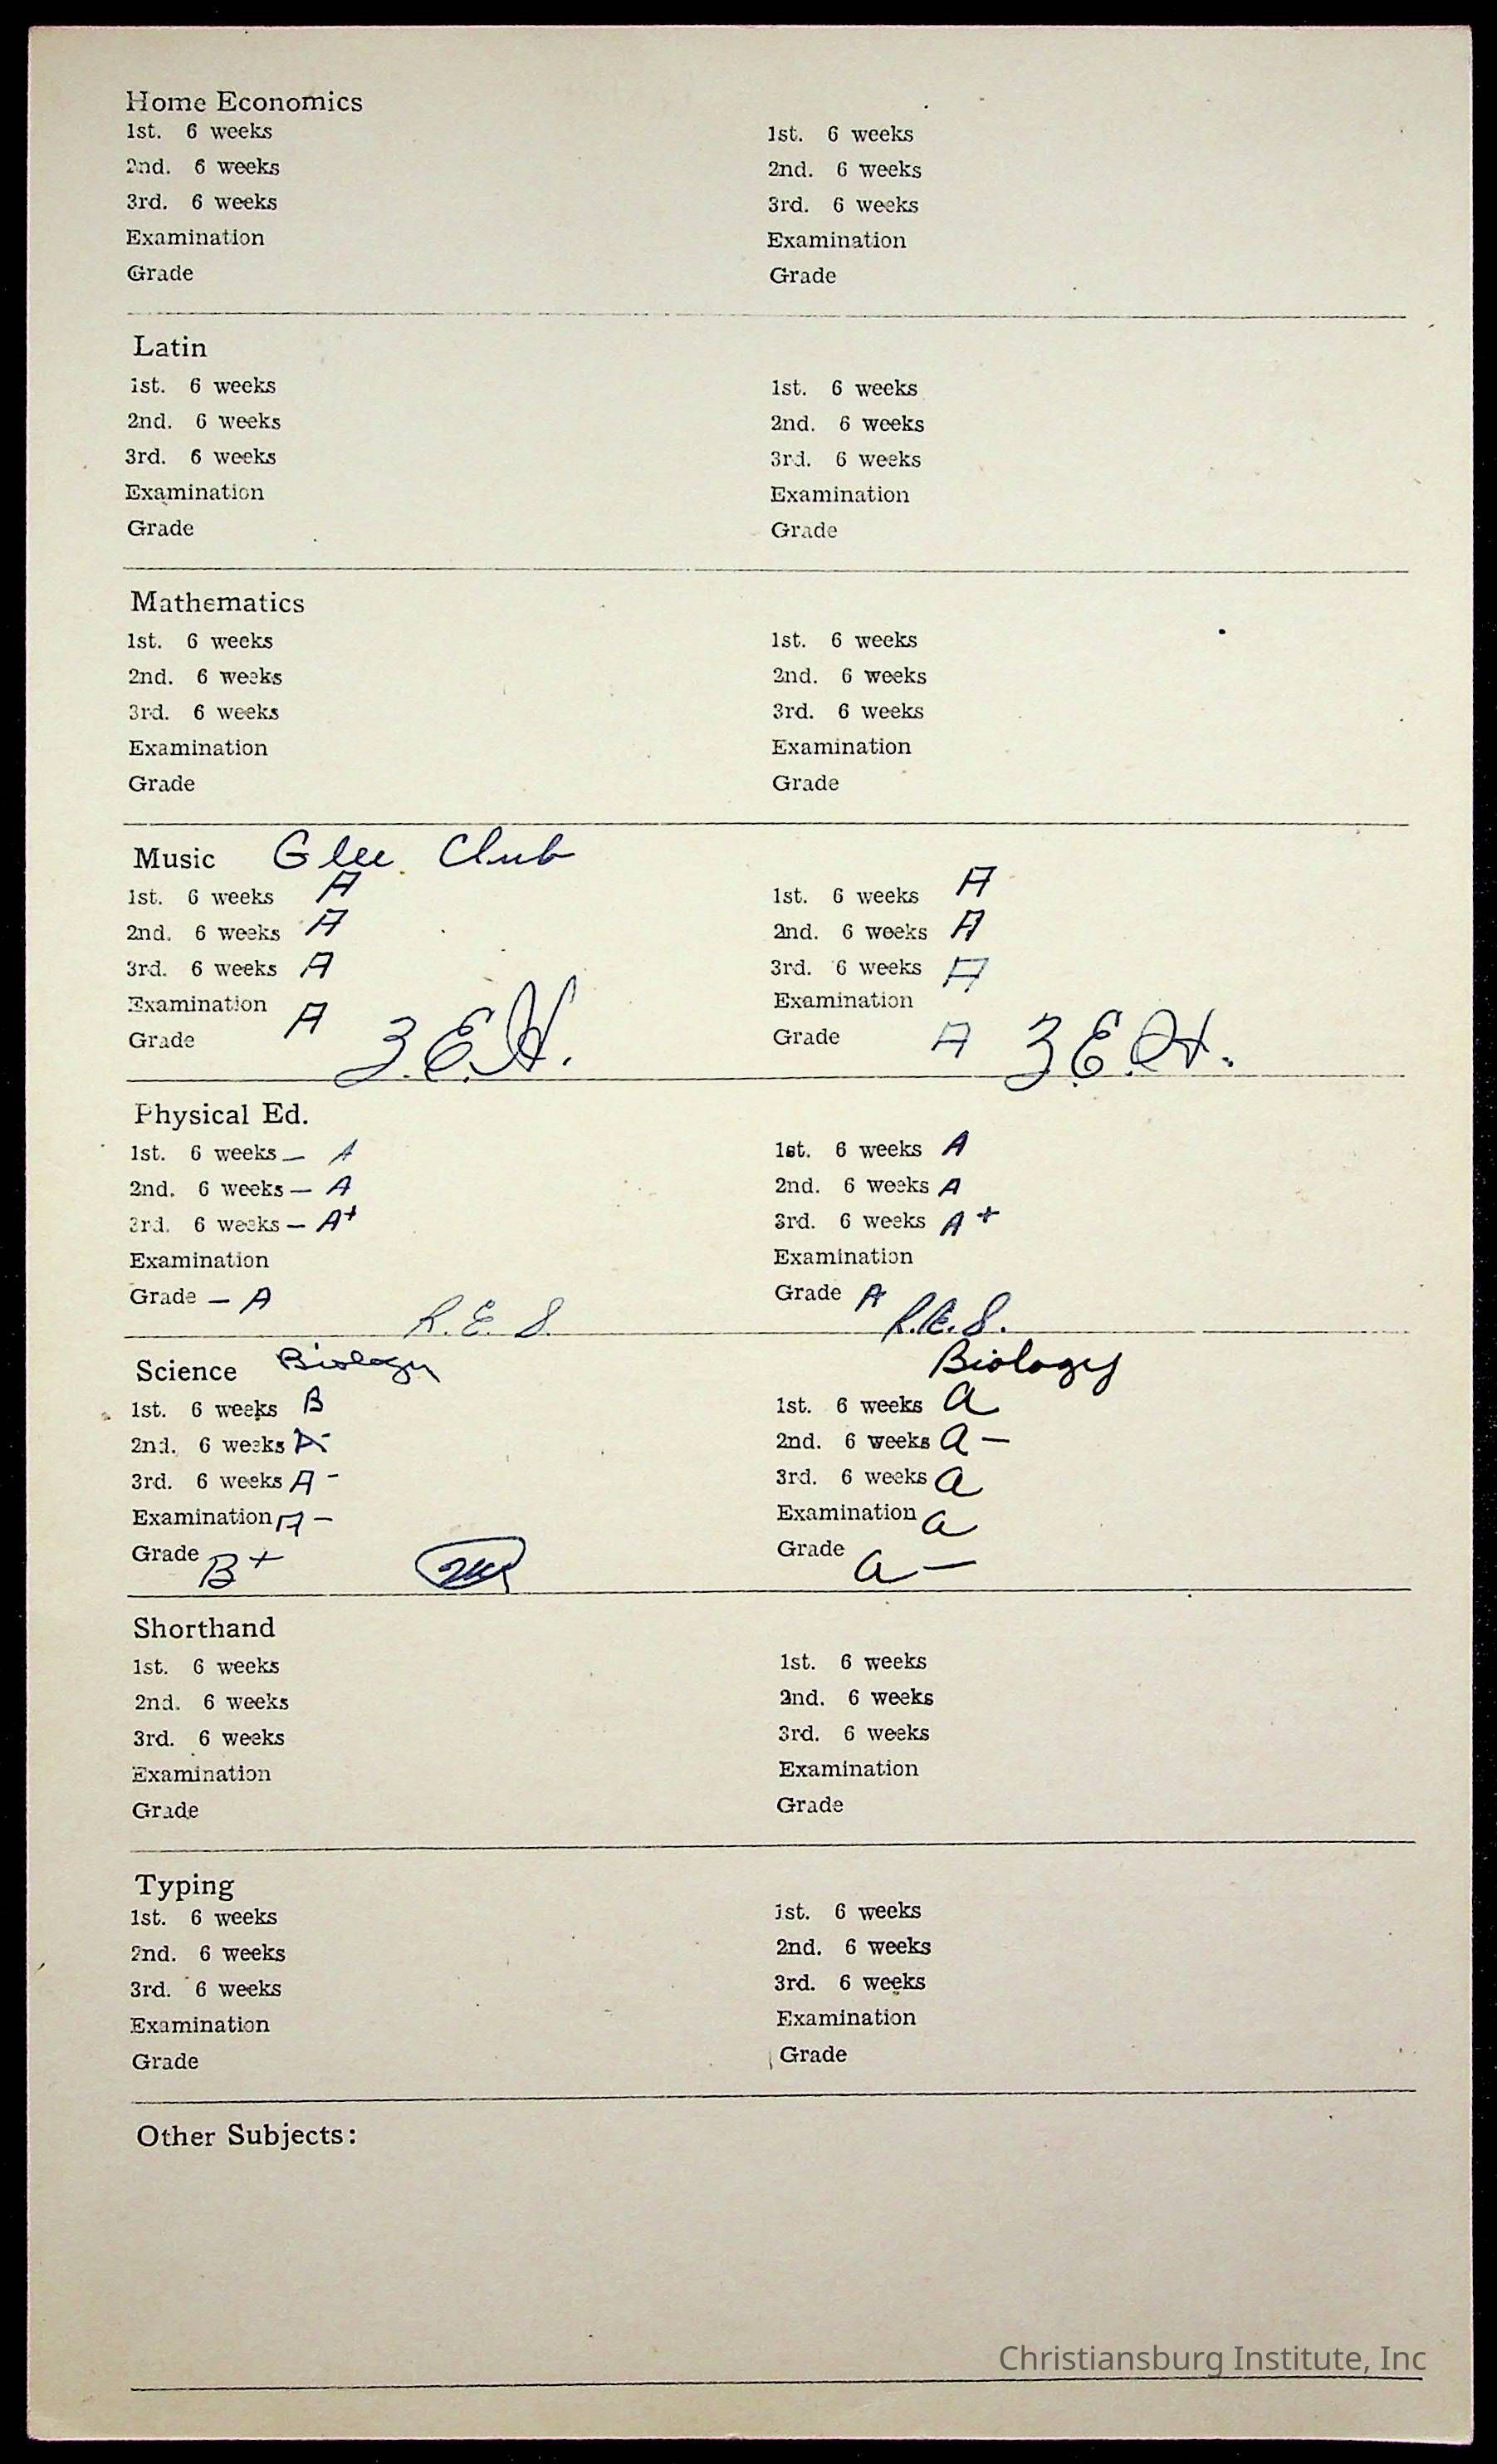 Home Economics
1st. 6 weeks
2nd. 6 weeks
3rd. 6 weeks
Examination
Grade
1st. 6 weeks
2nd. 6 weeks
3rd. 6 weeks
Examination
Grade
Latin
1st. 6 weeks
2nd. 6 weeks
3rd. 6 weeks
Examination
Grade
1st. 6 weeks
2nd. 6 weeks
3rd. 6 weeks
Examination
Grade
Mathematics
1st. 6 weeks
2nd. 6 weeks
3rd. 6 weeks
Examination
Grade
1st. 6 weeks
2nd. 6 weeks
3rd. 6 weeks
Examination
Grade
Music Glee Club
1st. 6 weeks A
2nd. 6 weeks A
3rd. 6 weeks A
Examination A
Grade
Z.E.H.
1st. 6 weeks A
2nd. 6 weeks A
3rd. 6 weeks A
Examination
Grade A Z.E.H.
Physical Ed.
1st. 6 weeks — A
2nd. 6 weeks — A
3rd. 6 weeks — A+
Examination
Grade — A
R.E.S.
1st. 6 weeks A
2nd. 6 weeks A
3rd. 6 weeks A+
Examination
Grade A R.E.S.
Science Biology
1st. 6 weeks B
2nd. 6 weeks A-
3rd. 6 weeks A -
Examination A -
Grade B+
Biology
1st. 6 weeks a
2nd. 6 weeks a -
3rd. 6 weeks a
Examination a
Grade a -
Shorthand
1st. 6 weeks
2nd. 6 weeks
3rd. 6 weeks
Examination
Grade
1st. 6 weeks
2nd. 6 weeks
3rd. 6 weeks
Examination
Grade
Typing
1st. 6 weeks
2nd. 6 weeks
3rd. 6 weeks
Examination
Grade
1st. 6 weeks
2nd. 6 weeks
3rd. 6 weeks
Examination
Grade
Other Subjects:
Christiansburg Institute, Inc